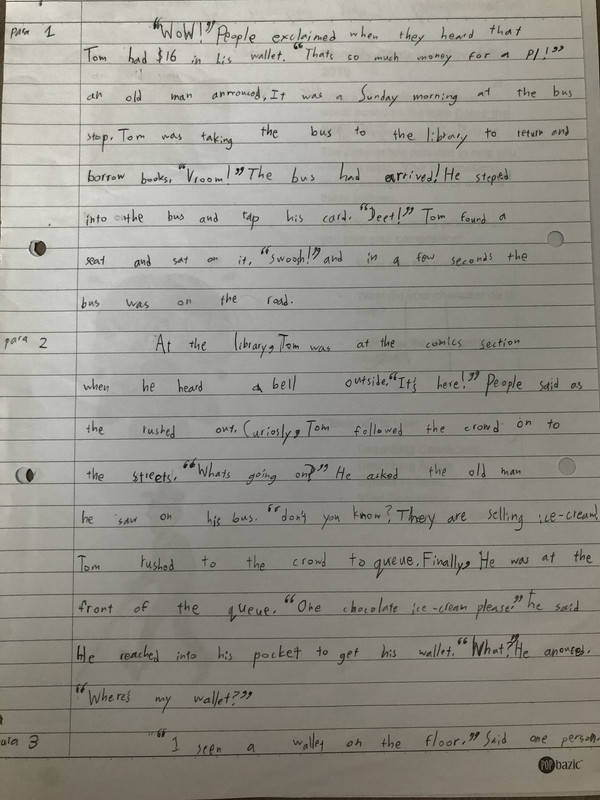 para 1 "WoW!" People exclaimed when they heard that
Tom had $16 in his wallet. "Thats so much money for a P1!"
an old man annonced, It was a Sunday morning at the bus
stop. Tom was taking the bus to the library to return and
borrow books. "Vroom!" The bus had arrived! He steped
into the bus and tap his card. "Deet!" Tom found a
seat and sat on it, "swoosh!" and in a few seconds the
bus was on the road.
para 2 At the library, Tom was at the comics section
when he heard a bell outside. "It's here!" People said as
the rushed out. Curiosly, Tom followed the crowd on to
the streets. "Whats going on?" He asked the old man
he saw on his bus. "don't you know? They are selling ice-cream.
Tom rushed to the crowd to queue. Finally, He was at the
front of the queue. "One chocolate ice-cream please." he said
He reached into his pocket to get his wallet. "What?" He anouced.
"Where's my wallet?"
3 "I seen a wallet on the floor." Said one person
POP bazic